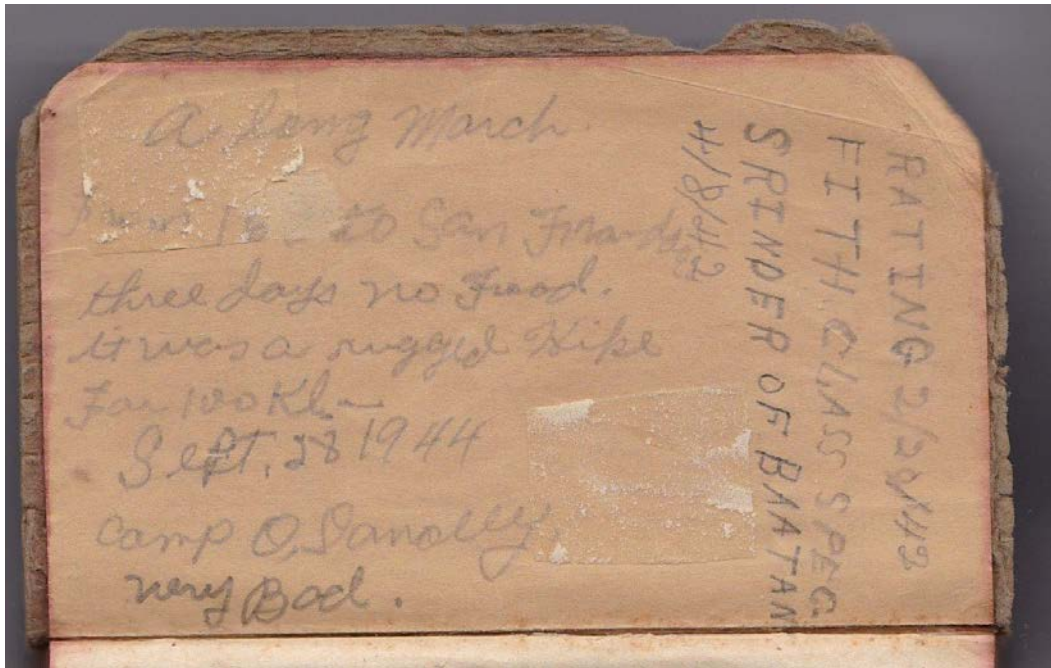 A long March
From to San Frando
three days no Food.
it was a rugged Hike
For 100 Kl-
Sept. 28 1944
Camp O, Danolly,
very Bad.
RATTING 2/20/42
FITTH CLASS SPEC.
SRINDER OF BAATAN
4/8/42